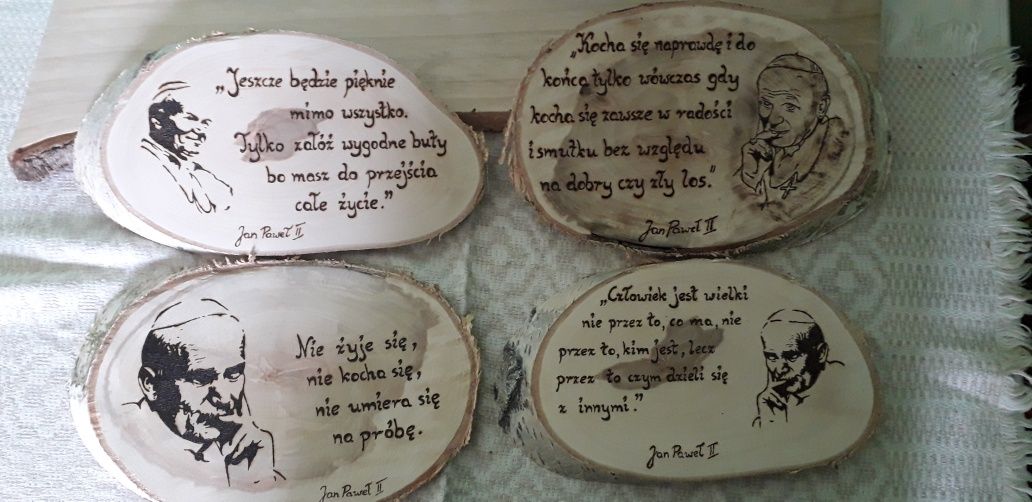 „Jeszcze będzie pięknie
mimo wszystko.
Tylko załóż wygodne buty
bo masz do przejścia
całe życie.”
Jan Paweł II
„Kocha się naprawdę i do
końca tylko wówczas gdy
kocha się zawsze w radości
i smutku bez względu
na dobry czy zły los.”
Jan Paweł II
Nie żyje się,
nie kocha się,
nie umiera się
na próbę.
Jan Paweł II
„Człowiek jest wielki
nie przez to, co ma, nie
przez to, kim jest, lecz
przez to czym dzieli się
z innymi.”
Jan Paweł II